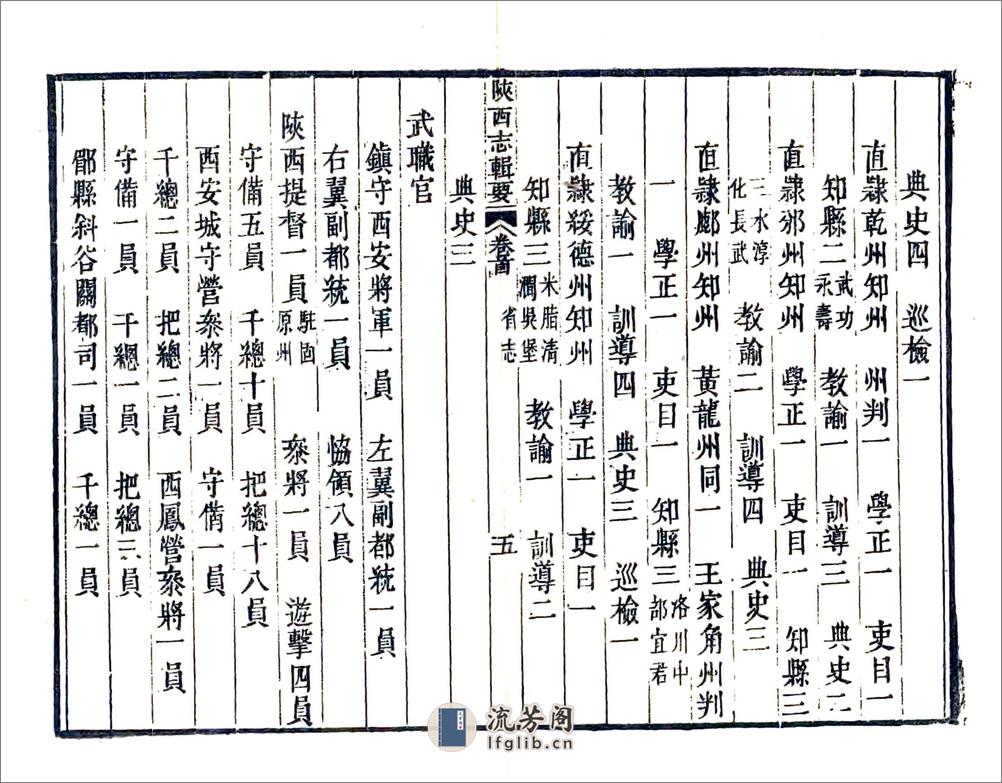 典史四　巡檢一
直隸乾州知州　州判一　學正一　吏目一
知縣二武功永壽　教諭一　訓導三　典史二
直隸邠州知州　學正一　吏目一　知縣三
三水淳化長武　教諭二　訓導四　典史三
直隸鄜州知州　黃龍州同一　王家角州判
一　學正一　吏目一　知縣三洛川中部宜君
教諭一　訓導四　典史三　巡檢一
直隸綏德州知州　學正一　吏目一
知縣三米脂清澗吳堡　教諭一　訓導二
陝西志輯要　卷首　省志　五
典史三
武職官
鎮守西安將軍一員　左翼副都統一員
右翼副都統一員　恊領八員
陝西提督一員駐固原州　叅將一員　遊擊四員
守備五員　千總十員　把總十八員
西安城守營叅將一員　守備一員
千總二員　把總二員　西鳳營叅將一員
守備一員　千總一員　把總三員
郿縣斜谷關都司一員　千總一員
流芳阁
lfglib.cn